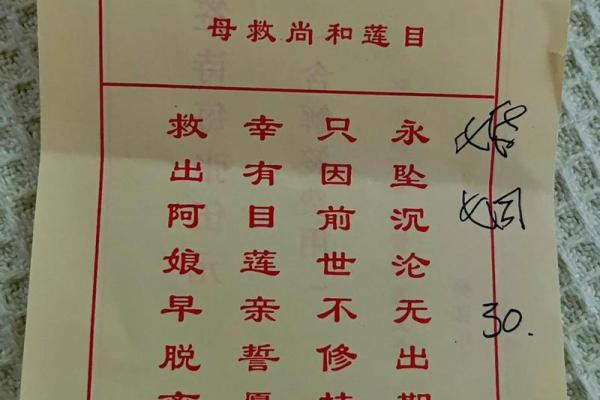 目莲和尚救母
婚姻
30.
永坠沉沦无出期
只因前世不修持
幸有目莲亲誓愿
救出阿娘早脱离